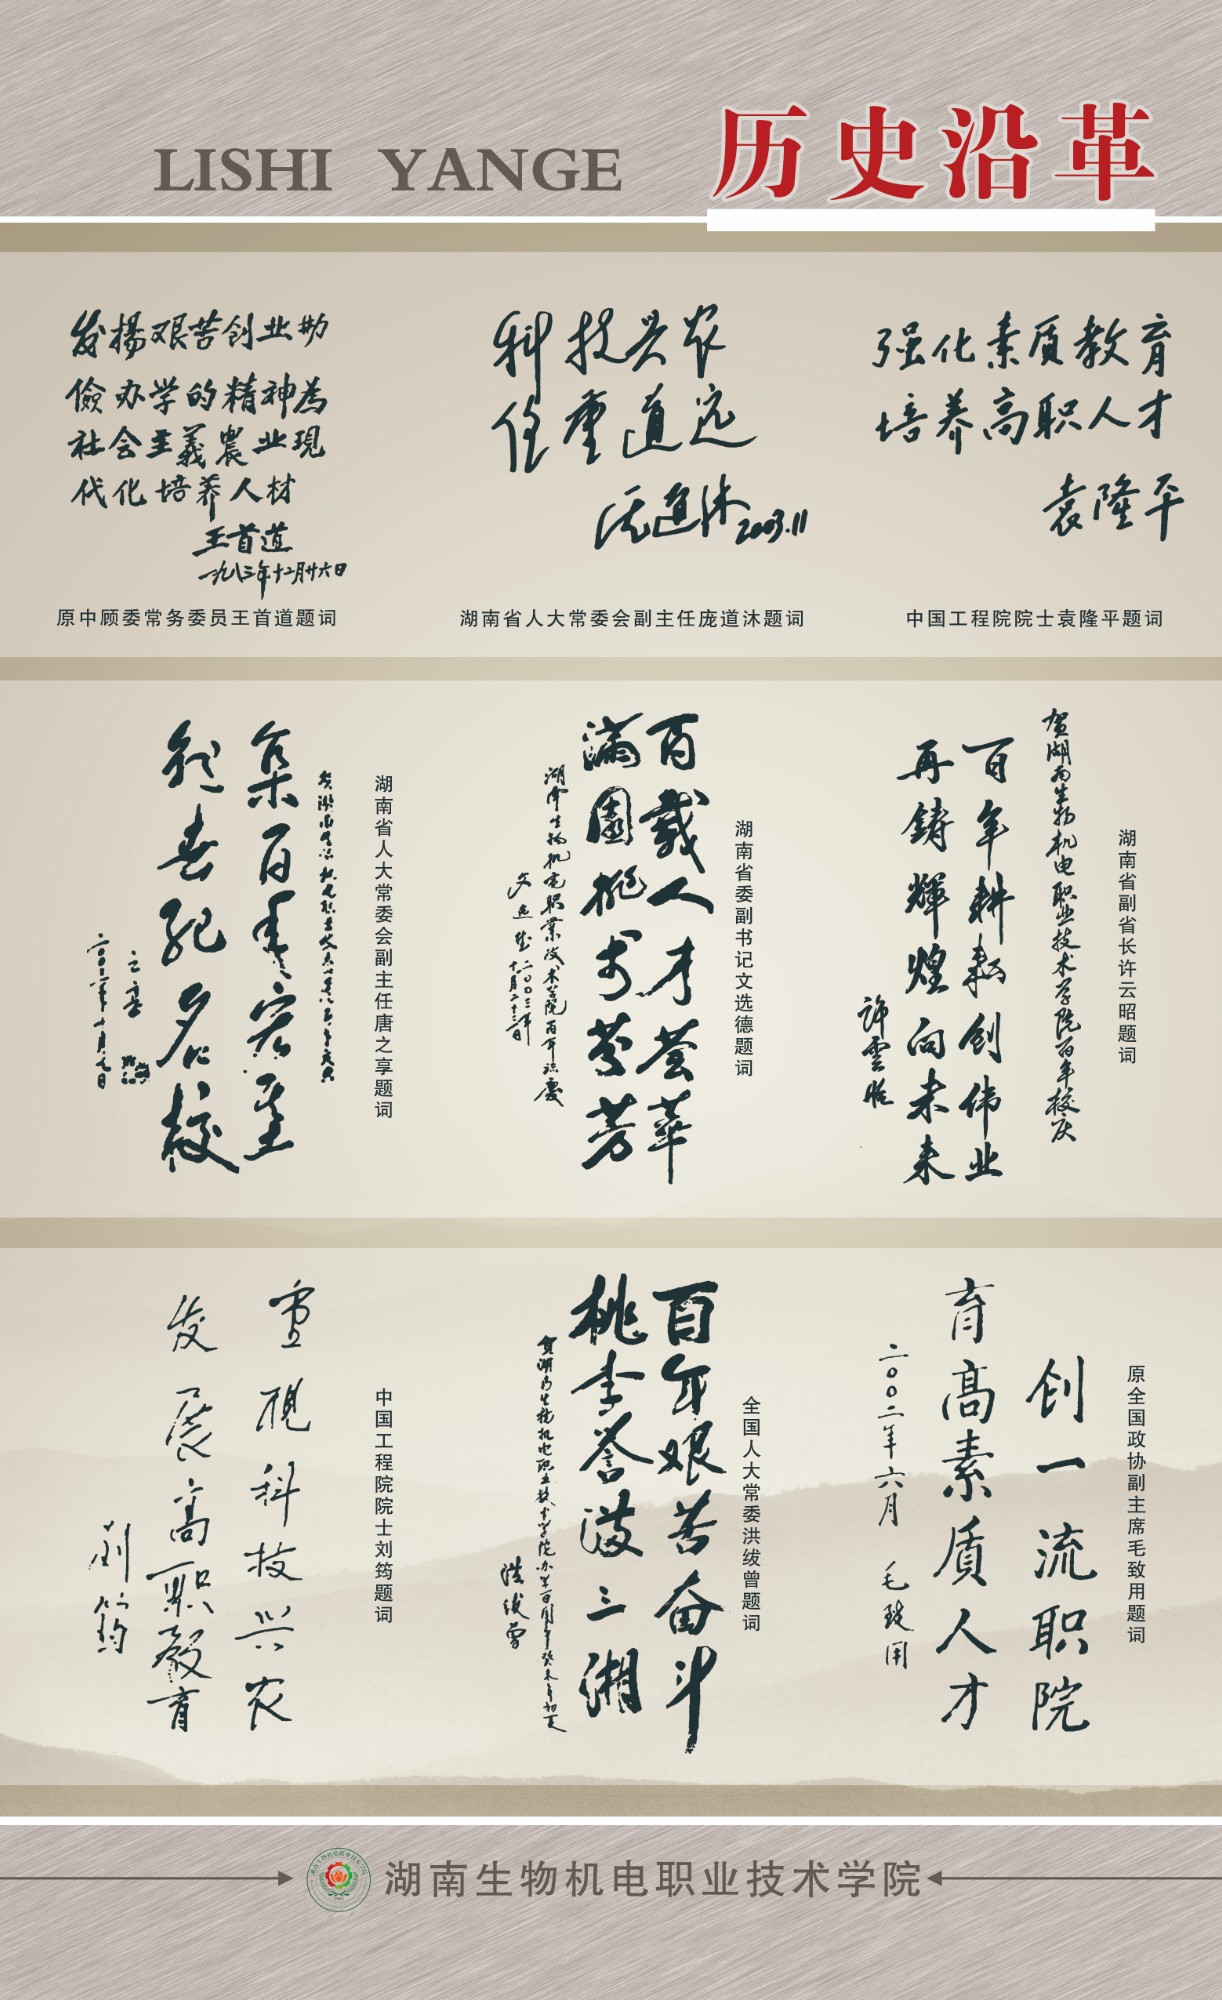 LISHI YANGE
历史沿革
发揚艰苦创业勤
儉办学的精神為
社会主義農业現
代化培养人材
王首道
一九八三年十二月廿六日
原中顾委常务委员王首道题词
科技兴农
任重道远
庞道沐2003.11
湖南省人大常委会副主任庞道沐题词
强化素质教育
培养高职人才
袁隆平
中国工程院院士袁隆平题词
湖南省副省长许云昭题词
贺湖南生物机电职业技术学院百年校庆
百年耕耘创伟业
再鋳輝煌向未来
許雲昭
湖南省委副书记文选德题词
百载人才荟萃
满園桃李芬芳
湖南生物机电职業技术学院百年院慶
文选德二00三年
十月二十三日
湖南省人大常委会副主任唐之享题词
集百年
名校
中国工程院院士刘筠题词
重視科技兴农
发展高职教育
刘筠
全国人大常委洪绂曾题词
百年艰苦奋斗
桃李誉满三湘
贺湖南生物机电职业技术学院办学百周年癸未年初夏
洪绂曾
原全国政协副主席毛致用题词
创一流职院
育高素质人才
二00二年六月 毛致用
湖南生物机电职业技术学院